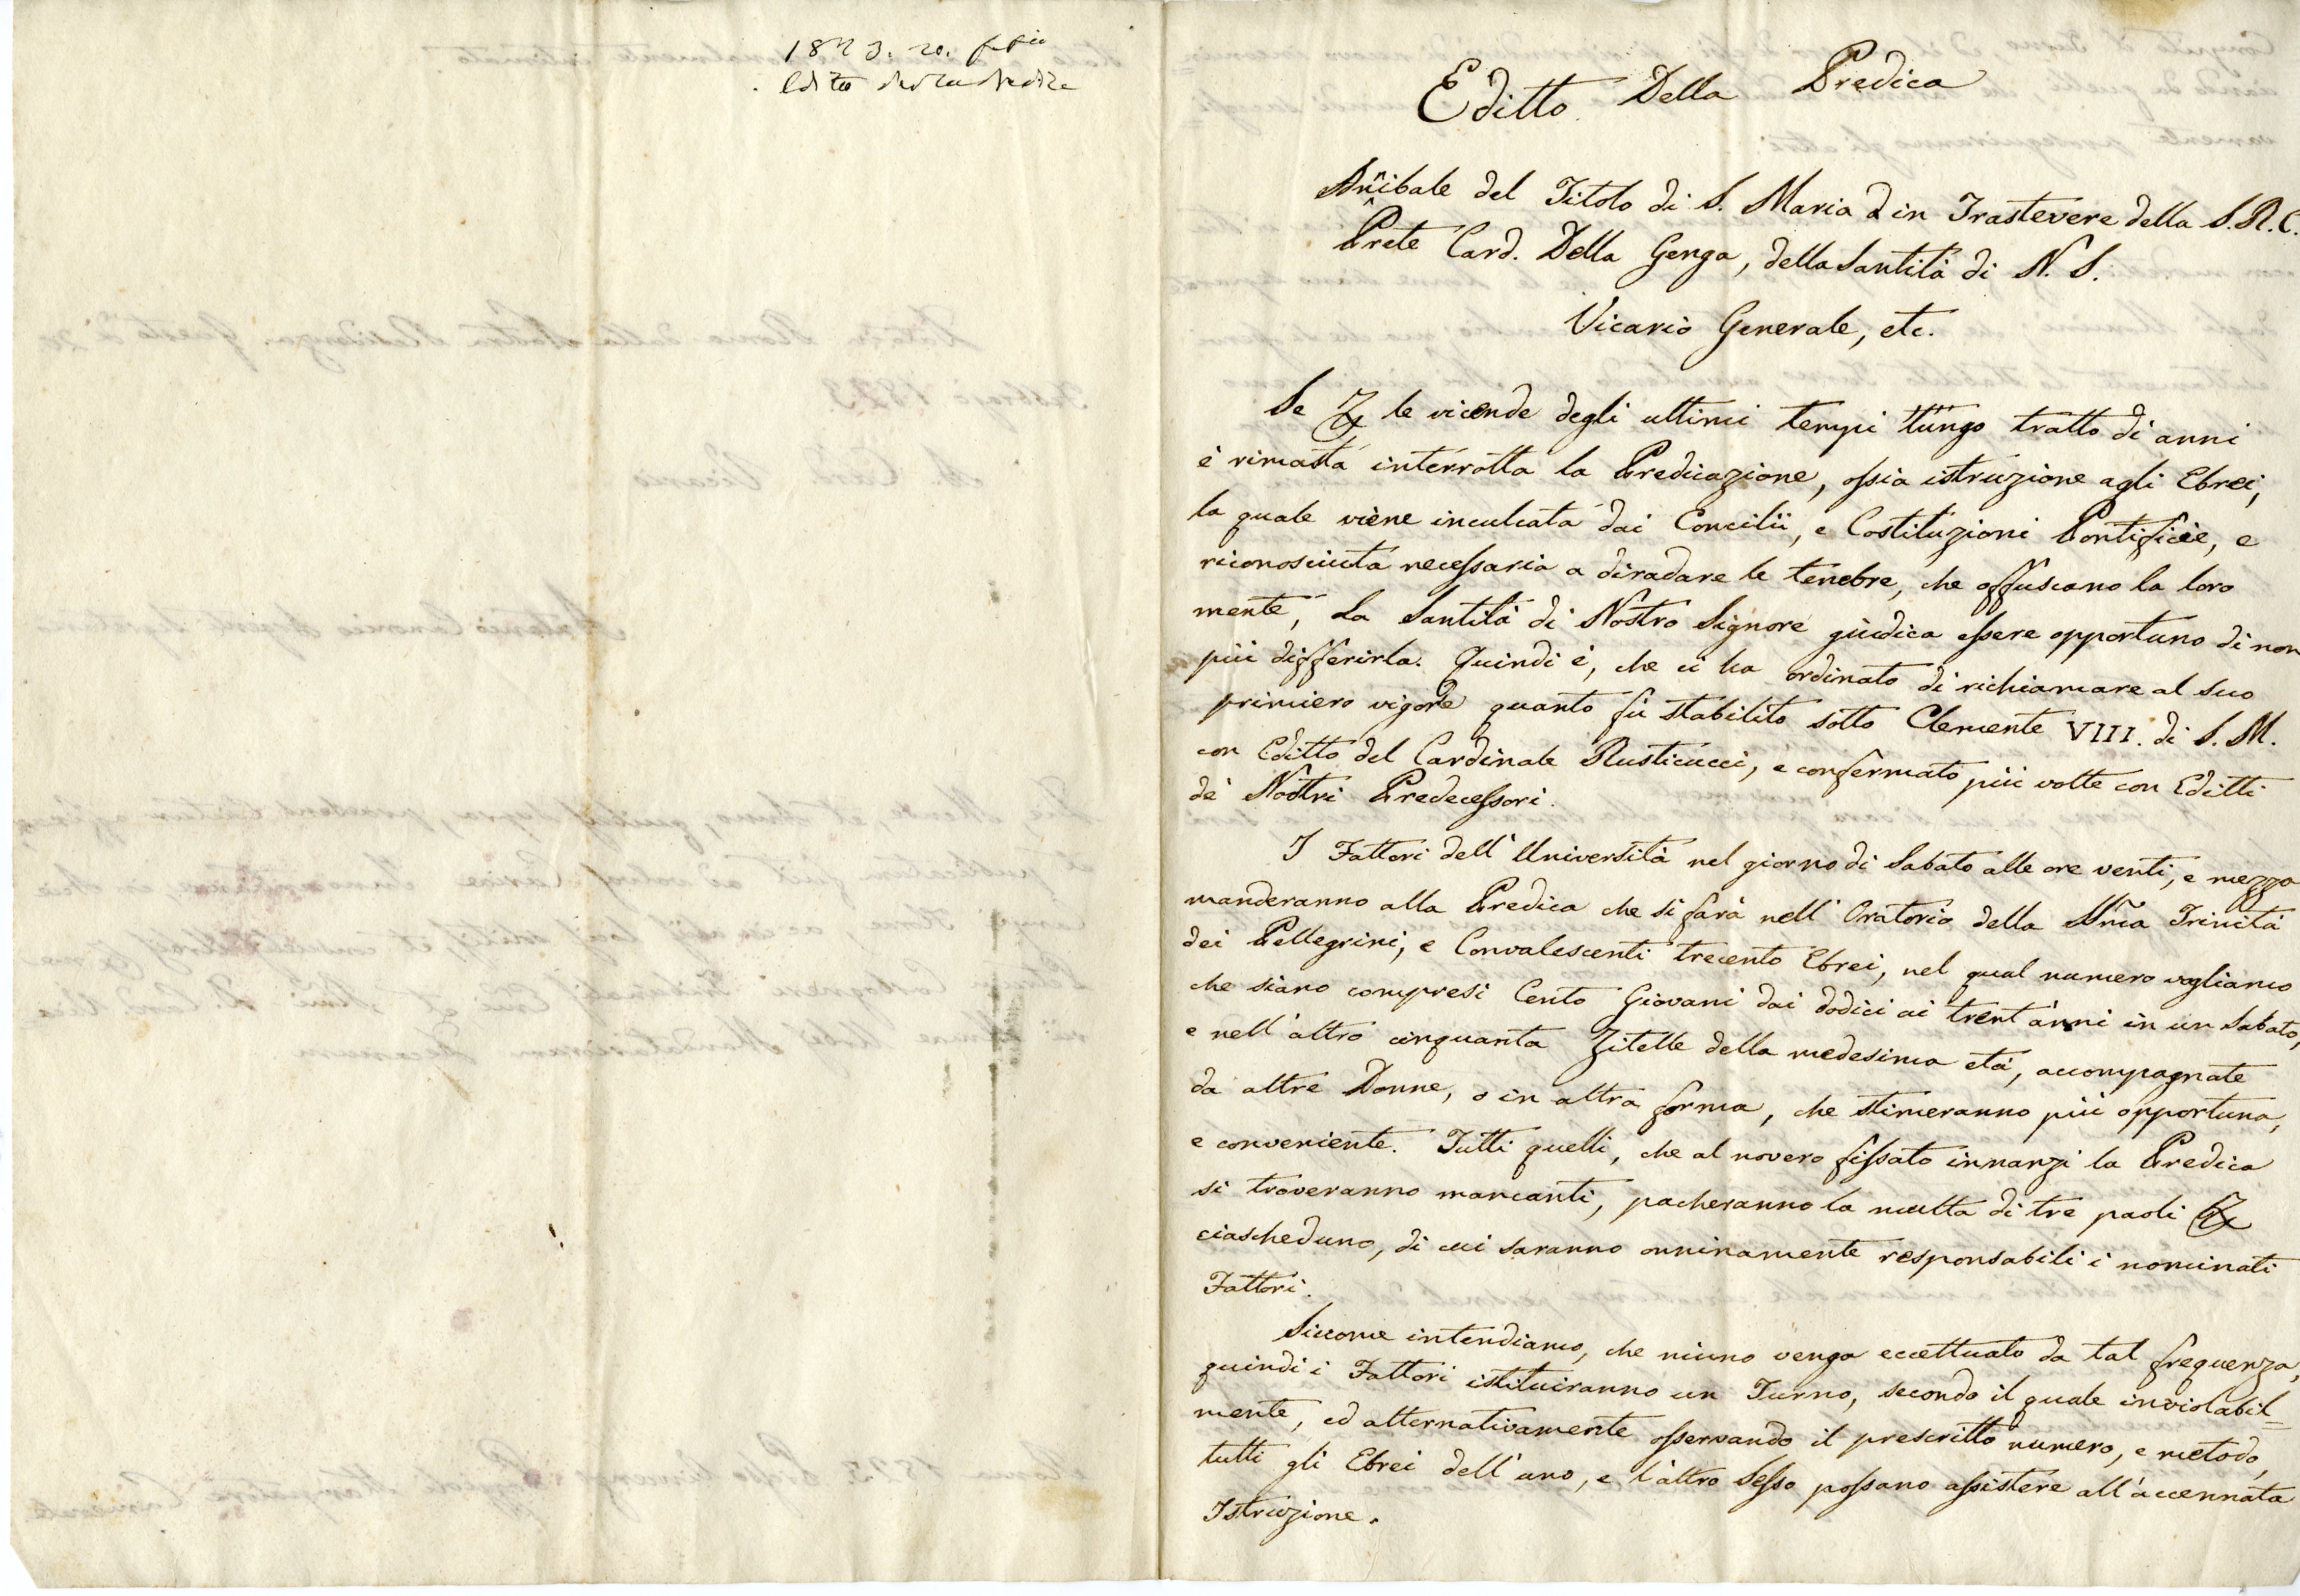 1823. 20.
Editto della Predica
Editto Della Predica
Añibale del Titolo di S. Maria in Trastevere della S. R. C.
Prete Card. Della Genga, della Santità di N. S.
Vicario Generale, etc.
Se le vicende degli ultimi tempi lungo tratto di anni
è rimasta interrotta la Predicazione, ossia istruzione agli Ebrei,
la quale viene inculcata dai Concilii, e Costituzioni Pontificie, e
riconosciuta necessaria a diradare le tenebre, che offuscano la loro
mente, La Santità di Nostro Signore giudica essere opportuno di non
più differirla. Quindi è, che ci ha ordinato di richiamare al suo
primiero vigore quanto fù stabilito sotto Clemente VIII. di S. M.
con Editto del Cardinale Rusticucci, e confermato più volte con Editti
de' Nostri Predecessori.
I Fattori dell' Università nel giorno di Sabato alle ore venti, e mezzo
manderanno alla Predica che si farà nell' Oratorio della Sm̃a Trinità
dei Pellegrini, e Convalescenti trecento Ebrei, nel qual numero vogliamo
che siano compresi Cento Giovani dai dodici ai trent'anni in un Sabato,
e nell'altro cinquanta Zitelle della medesima età, accompagnate
da altre Donne, o in altra forma, che stimeranno più opportuna,
e conveniente. Tutti quelli, che al novero fissato innanzi la Predica
si troveranno mancanti, pacheranno la multa di tre paoli
ciascheduno, di cui saranno onninamente responsabili i nominati
Fattori.
Siccome intendiamo, che niuno venga eccettuato da tal frequenza,
quindi i Fattori istituiranno un Turno, secondo il quale inviolabil=
mente, ed alternativamente osservando il prescritto numero, e metodo,
tutti gli Ebrei dell'uno, e l'altro Sesso possano assistere all'accennata
Istruzione.